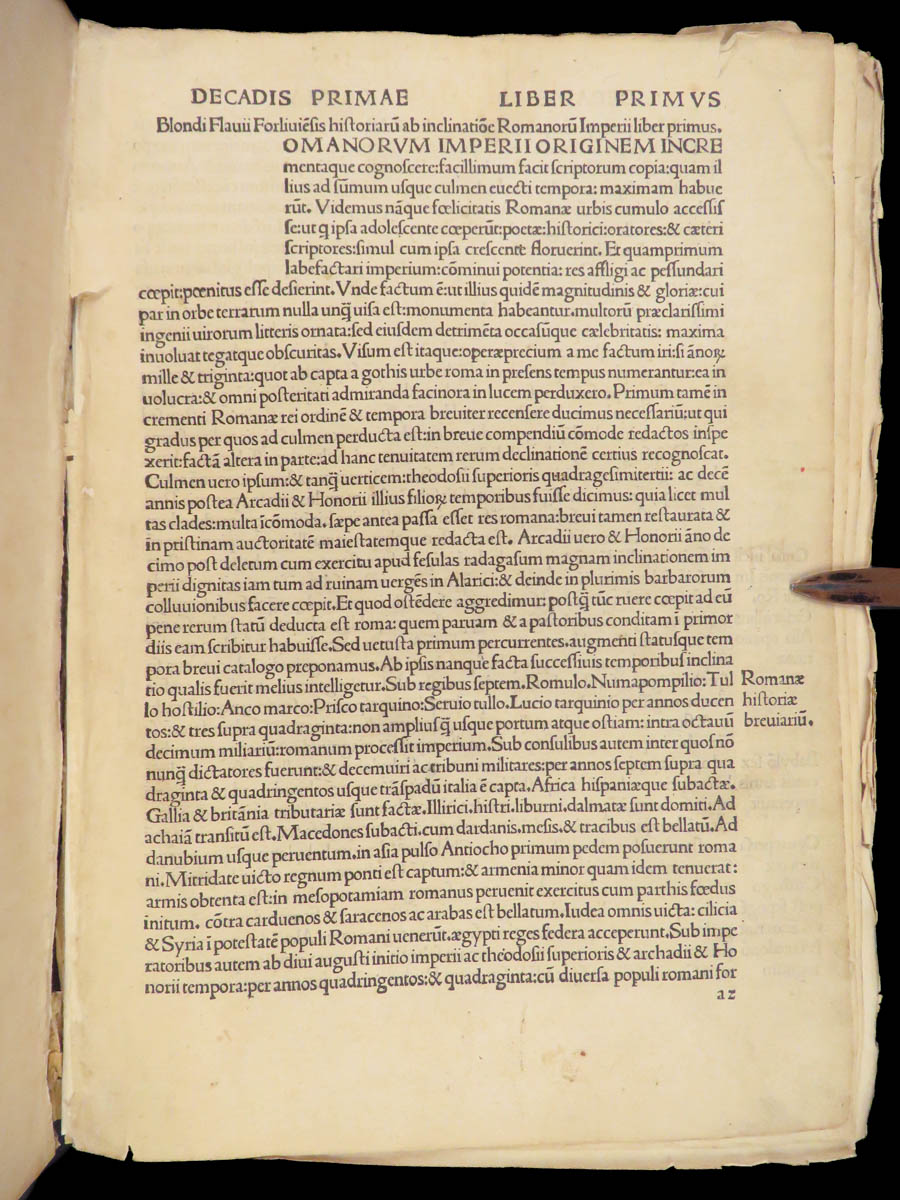 DECADIS PRIMAE LIBER PRIMVS
Blondi Flauii Forliuiēsis historiarū ab inclinatiōe Romanorū Imperii liber primus.
OMANORVM IMPERII ORIGINEM INCRE
mentaque cognoscere:facillimum facit scriptorum copia:quam il
lius ad sūmum usque culmen euecti tempora: maximam habue
rūt. Videmus nāque fœlicitatis Romanæ urbis cumulo accessis
se:ut q̄ ipsa adolescente cœperūt:poetæ:historici:oratores:& cæteri
scriptores:simul cum ipsa crescente floruerint. Et quamprimum
labefactari imperium:cōminui potentia: res affligi ac pessundari
cœpit:pœnitus esse desierint. Vnde factum ē:ut illius quidē magnitudinis & gloriæ:cui
par in orbe terrarum nulla unq̄ uisa est:monumenta habeantur.multorū præclarissimi
ingenii uirorum litteris ornata:sed eiusdem detrimēta occasūque cælebritatis: maxima
inuoluat tegatque obscuritas.Visum est itaque:operæprecium a me factum iri:si ānoꝝ
mille & triginta:quot ab capta a gothis urbe roma in presens tempus numerantur:ea in
uolucra:& omni posteritati admiranda facinora in lucem perduxero. Primum tamē in
crementi Romanæ rei ordinē & tempora breuiter recensere ducimus necessariū:ut qui
gradus per quos ad culmen perducta est:in breue compendiū cōmode redactos inspe
xerit:factā altera in parte:ad hanc tenuitatem rerum declinationē certius recognoscat.
Culmen uero ipsum:& tanq̄ uerticem:theodosii superioris quadragesimitertii: ac decē
annis postea Arcadii & Honorii illius filioꝝ temporibus fuisse dicimus: quia licet mul
tas clades:multa īcōmoda.sæpe antea passa esset res romana:breui tamen restaurata &
in pristinam auctoritatē maiestatemque redacta est. Arcadii uero & Honorii āno de
cimo post deletum cum exercitu apud fesulas radagasum magnam inclinationem im
perii dignitas iam tum ad ruinam uergēs in Alarici:& deinde in plurimis barbarorum
colluuionibus facere cœpit.Et quod ostēdere aggredimur: postq̄ tūc ruere cœpit ad eū
pene rerum statū deducta est roma: quem paruam & a pastoribus conditam i primor
diis eam scribitur habuisse. Sed uetusta primum percurrentes.augmenti statusque tem
pora breui catalogo preponamus. Ab ipsis nanque facta successiuis temporibus inclina
tio qualis fuerit melius intelligetur. Sub regibus septem. Romulo. Numapompilio: Tul
lo hostilio: Anco marco: Prisco tarquino: Seruio tullo. Lucio tarquinio per annos ducen
tos:& tres supra quadraginta:non ampliusq̄ usque portum atque ostiam: intra octauū
decimum miliariū:romanum processit imperium. Sub consulibus autem inter quos nō
nunq̄ dictatores fuerunt:& decemuiri ac tribuni militares:per annos septem supra qua
draginta & quadringentos usque trāspadū italia ē capta. Africa hispaniæque subactæ.
Gallia & britānia tributariæ sunt factæ. Illirici.histri.liburni.dalmatæ sunt domiti. Ad
achaiā transitū est. Macedones subacti.cum dardanis.mesis.& tracibus est bellatū. Ad
danubium usque peruentum.in asia pulso Antiocho primum pedem posuerunt roma
ni. Mitridate uicto regnum ponti est captum:& armenia minor quam idem tenuerat:
armis obtenta est:in mesopotamiam romanus peruenit exercitus cum parthis fœdus
initum. cōtra carduenos & saracenos ac arabas est bellatum. Iudea omnis uicta: cilicia
& Syria ī potestatē populi Romani uenerūt.ægypti reges federa acceperunt. Sub impe
ratoribus autem ab diui augusti initio imperii ac theodosii superioris & archadii & Ho
norii tempora:per annos quadringentos:& quadraginta:cū diuersa populi romani for
a2
Romanæ
historiæ
breuiariū.